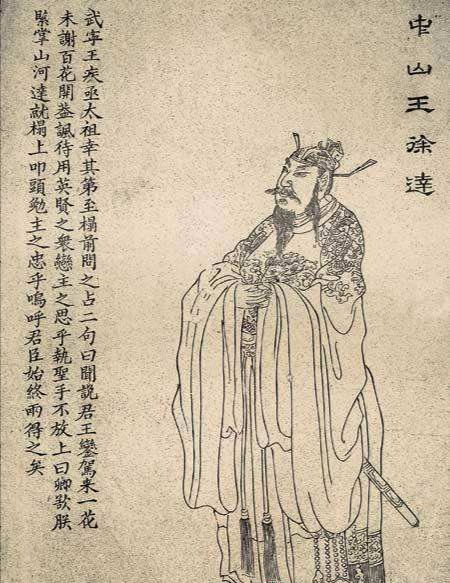 中山王徐達
武寧王疾亟太祖幸其第至榻前問之占二句曰聞說君王鑾駕来一花
未謝百花開蓋諷待用英賢之衆戀主之思乎執聖手不放上曰卿欲朕
緊掌山河達就榻上叩頭勉主之忠乎嗚呼君臣始終兩得之矣